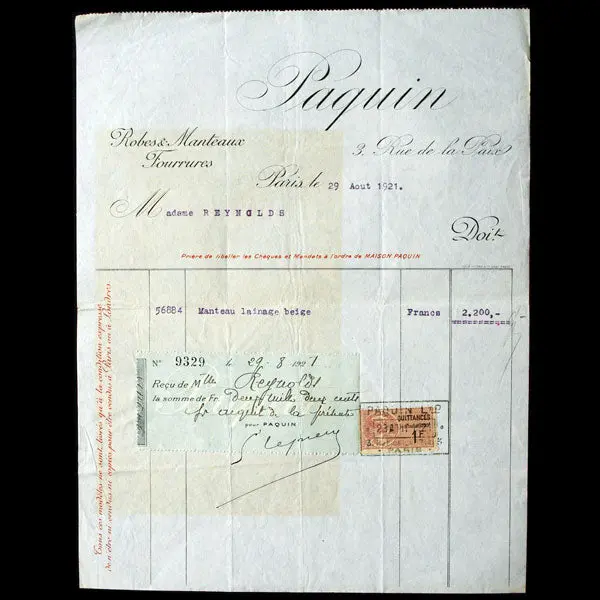 Paquin
Robes & Manteaux
Fourrures
3. Rue de la Paix
Paris, le 29 Aout 1921.
Madame REYNOLDS
Doit
Prière de libeller les Chèques et Mandats à l'ordre de MAISON PAQUIN
56884 Manteau lainage beige Francs 2.200,-
No 9329 le 29-8 1921
Reçu de Mlle Reynolds
la somme de Fr. Deux mille deux cents
pour PAQUIN
PAQUIN LTD
QUITTANCES
1F
PARIS
Tous ces modèles ne sont livrés qu'à la condition expresse
de n'être ni vendus ni copiés pour être vendus à Paris ou à Londres.